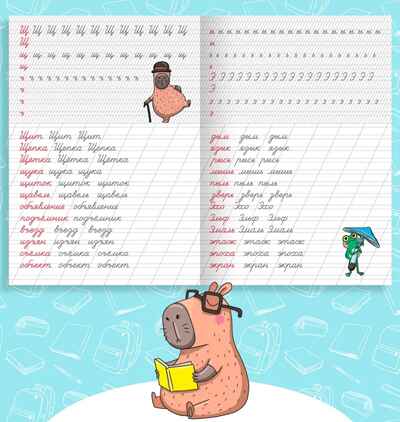 Щ Щ Щ Щ Щ Щ Щ Щ Щ Щ Щ Щ
Щ
щ щ щ щ щ щ щ щ щ щ щ щ
щ
ъ ъ ъ ъ ъ ъ ъ ъ ъ ъ ъ ъ ъ ъ
ъ
ъ
Щит Щит Щит
Щепка Щепка Щепка
Щётка Щётка Щётка
щука щука щука
щиток щиток щиток
щавель щавель щавель
объявление объявление
подъёмник подъёмник
въезд въезд въезд
изъян изъян изъян
съёмка съёмка съёмка
объект объект объект
дым дым дым
язык язык язык
рысь рысь рысь
мышь мышь мышь
пыль пыль пыль
дверь дверь зверь
Эхо Эхо Эхо
Эльф Эльф Эльф
Эмаль Эмаль Эмаль
этаж этаж этаж
эпоха эпоха эпоха
экран экран экран